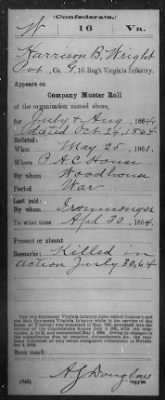 (Confederate.)
W 16 Va.
Harrison B. Wright
Pvt, Co. G, 16 Reg't Virginia Infantry.
Appears on
Company Muster Roll
of the organization named above,
for July & Aug, 1864.
dated Oct 24, 1864
Enlisted:
When May 25, 1861.
Where P. A. C. House
By whom Woodhouse
Period War
Last paid:
By whom Ironmonger
To what time Apl 30, 1864.
Present or absent
Remarks: Killed in
action July 30, 64
Book mark:
A J Douglass
(642) Copyist.